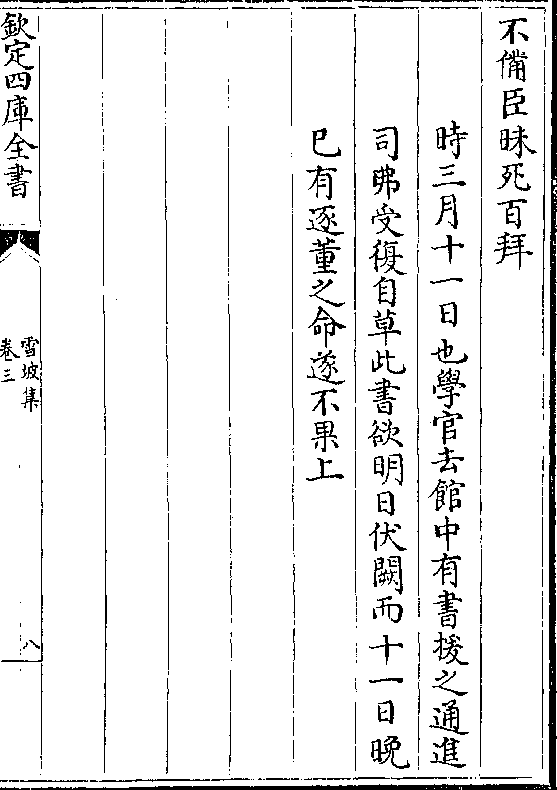 不備臣昧死百拜
時三月十一日也學官去館中有書援之通進
司弗受復自草此書欲明日伏闕而十一日晚
已有逐董之命遂不果上
欽定四庫全書
雪坡集
卷三
八